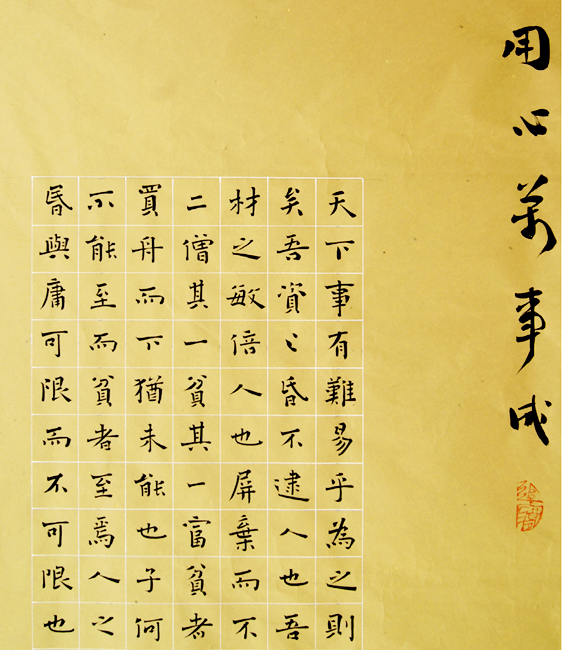 用心萬事成
天下事有難易乎為之則
矣吾資之昏不逮人也吾
材之敏倍人也屏棄而不
二僧其一貧其一富貧者
買舟而下猶未能也子何
不能至而貧者至焉人之
昏與庸可限而不可限也